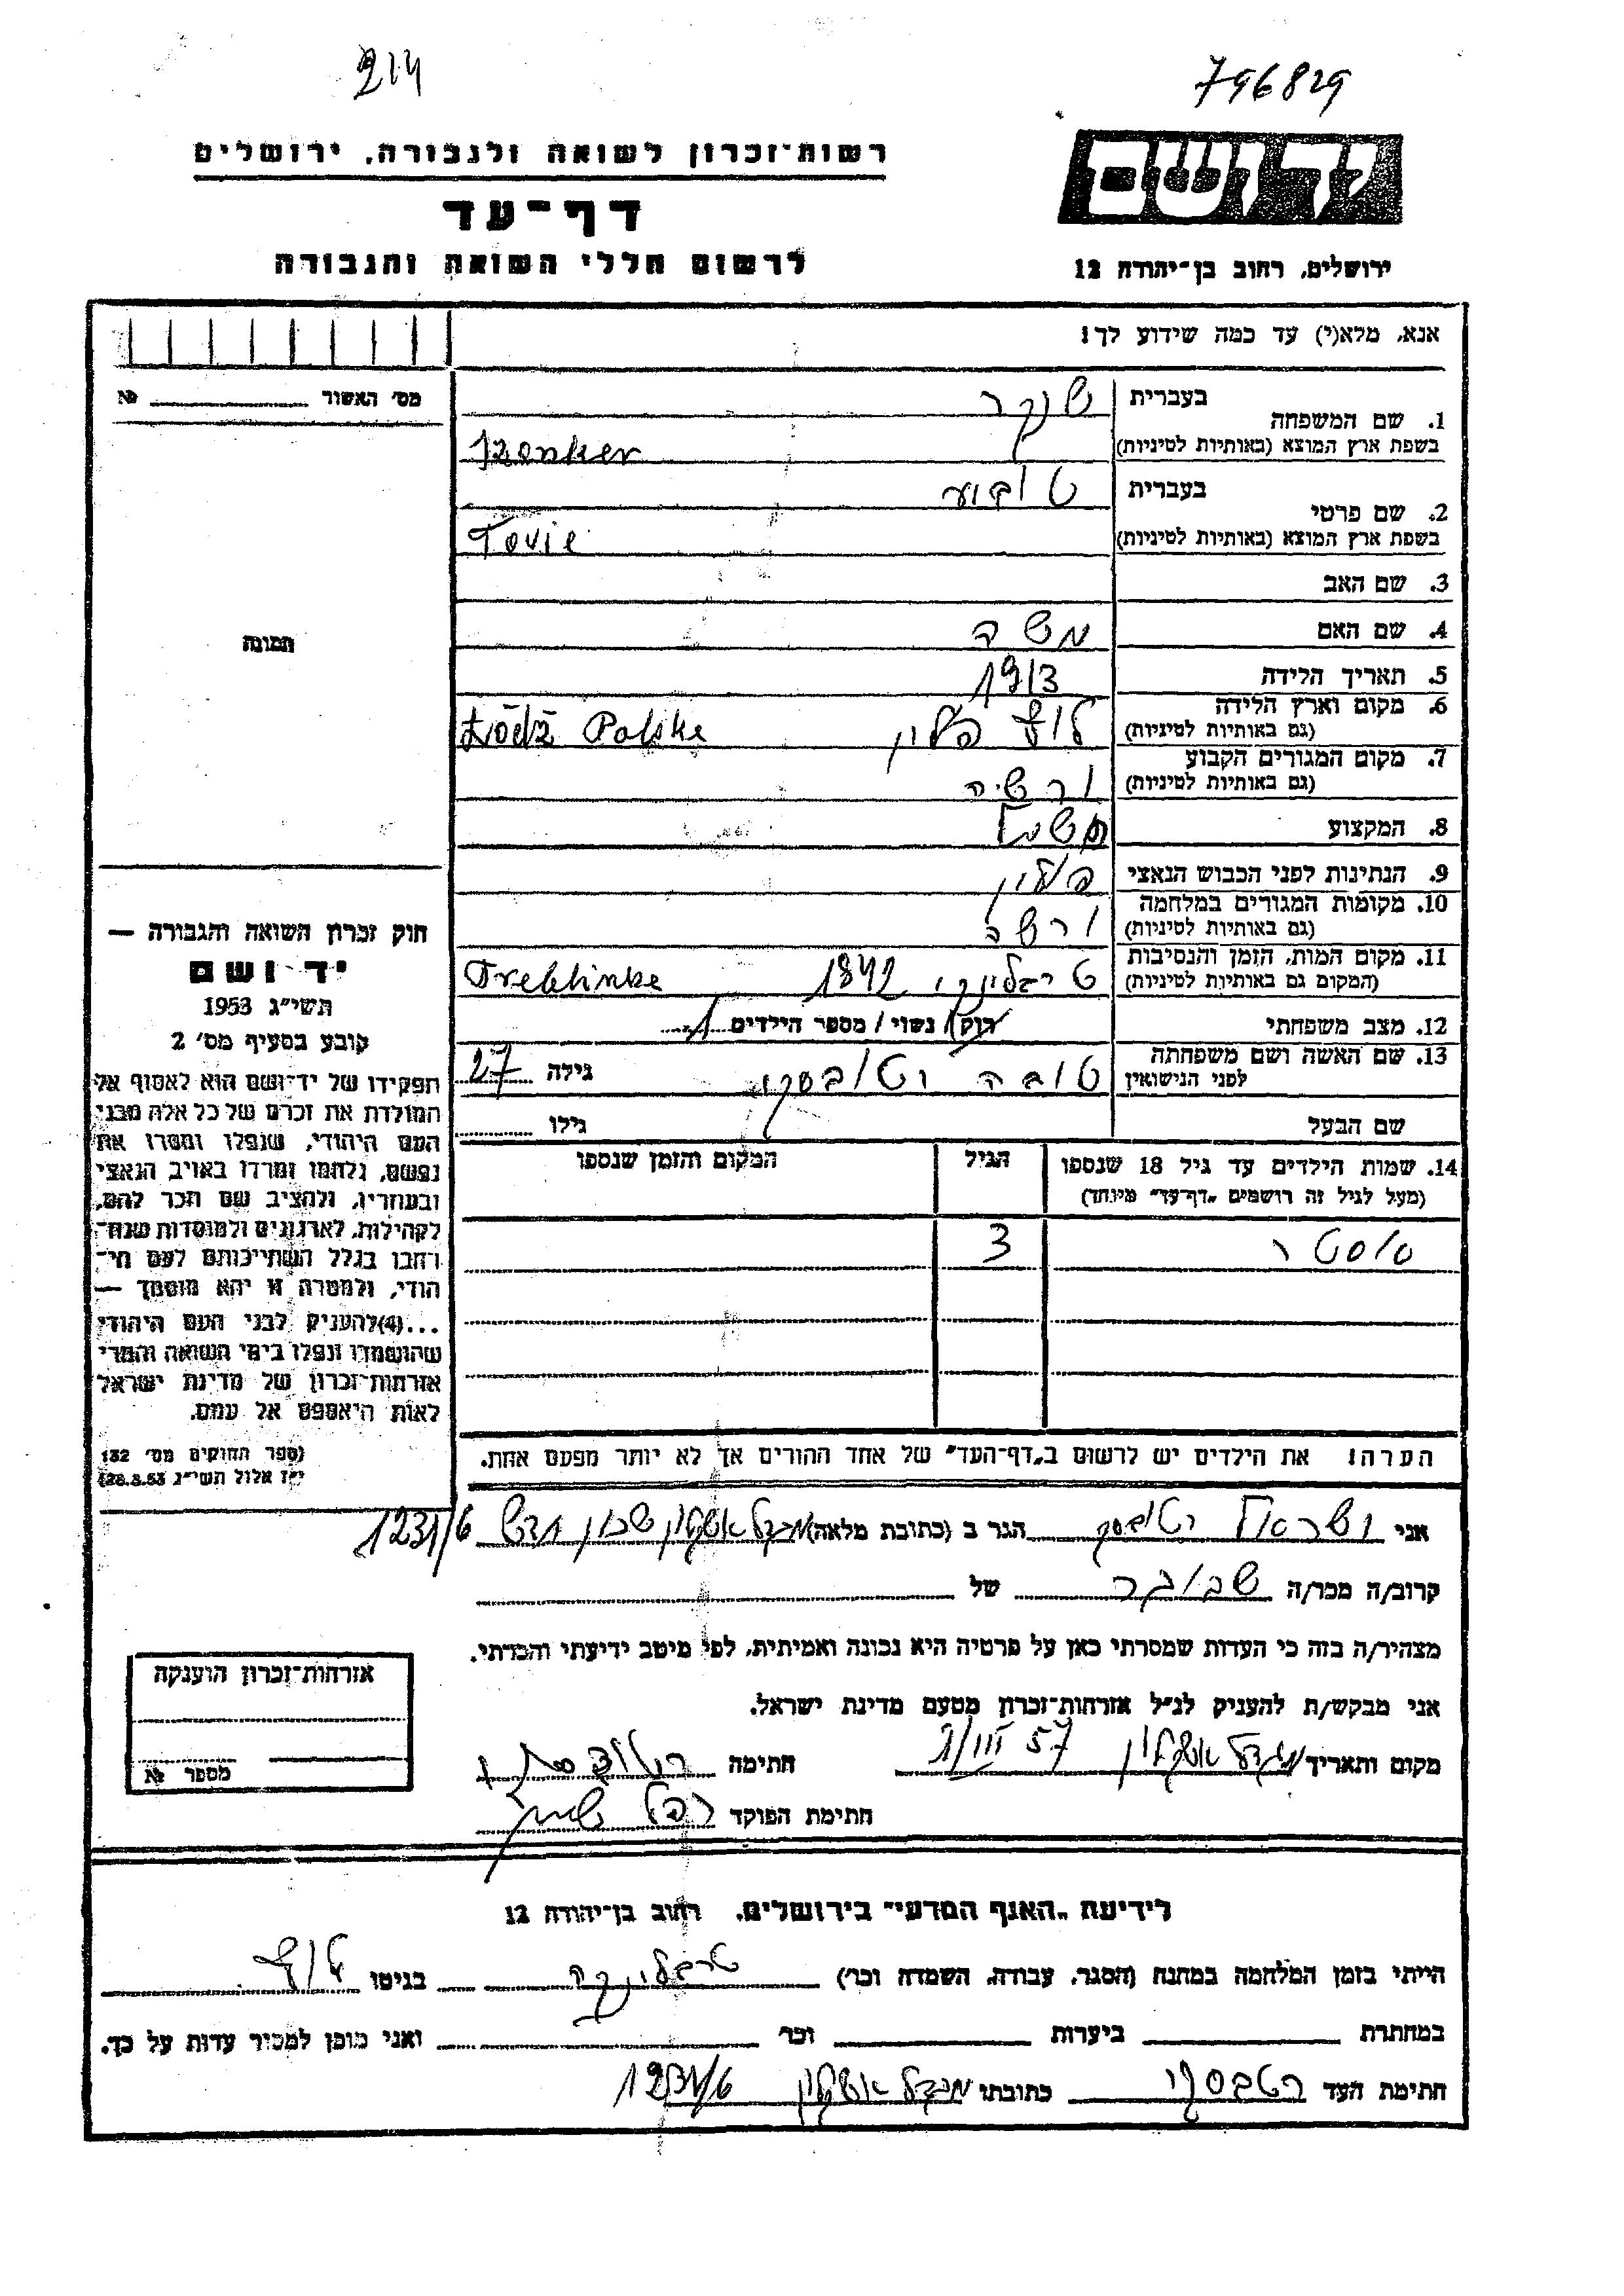 214
796829
רשות-זכרון לשואה ולגבורה, ירושלים
ידושם
דף-עד
לרשום חללי השואה והגבורה
ירושלים, רחוב בן-יהודה 12
אנא, מלא(י) עד כמה שידוע לך!
מס' האשור № 
1. שם המשפחה
בעברית שנקר
בשפת ארץ המוצא (באותיות לטיניות) Szenker
2. שם פרטי
בעברית
בשפת ארץ המוצא (באותיות לטיניות) Tovie
3. שם האב
4. שם האם משה
5. תאריך הלידה 1913
6. מקום וארץ הלידה (גם באותיות לטיניות) לודז פולין Łódź Polske
7. מקום המגורים הקבוע (גם באותיות לטיניות)
8. המקצוע
9. הנתינות לפני הכבוש הנאצי פולין
10. מקומות המגורים במלחמה (גם באותיות לטיניות) ורשה
11. מקום המות, הזמן והנסיבות (המקום גם באותיות לטיניות) טרבלינקי 1942 Treblinke
12. מצב משפחתי רוק/ נשוי/ מספר הילדים 1
13. שם האשה ושם משפחתה לפני הנישואין טובה רטובסקי גילה 27
שם הבעל גילו
14. שמות הילדים עד גיל 18 שנספו (מעל לגיל זה רושמים "דף-עד" מיוחד) הגיל המקום והזמן שנספו
אסטר 3
הערה! את הילדים יש לרשום ב"דף-העד" של אחד ההורים אך לא יותר מפעם אחת.
תמונה
חוק זכרון השואה והגבורה —
יד ושם
תשי"ג 1953
קובע בסעיף מס' 2
תפקידו של יד-ושם הוא לאסוף אל
המולדת את זכרם של כל אלה מבני
העם היהודי, שנפלו ומסרו את
נפשם, נלחמו ומרדו באויב הנאצי
ובעוזריו, ולהציב שם וזכר להם,
לקהילות, לארגונים ולמוסדות שנח-
רחבו בגלל השתייכותם לעם הי-
הודי, ולמטרה זו יהא מוסמך —
...(4)להעניק לבני העם היהודי
שהושמדו ונפלו בימי השואה והמרי
אזרחות-זכרון של מדינת ישראל
לאות היאספם אל עמם.
(ספר החוקים מס' 132
י"ז אלול תשי"ג 28.8.53)
אני ישראל רטובסקי הגר ב (כתובת מלאה) מגדל אשקלון שכון חדש 1231/6
קרוב/ה מכר/ה של
מצהיר/ה בזה כי העדות שמסרתי כאן על פרטיה היא נכונה ואמיתית, לפי מיטב ידיעתי והכרתי.
אני מבקש/ת להעניק לנ"ל אזרחות-זכרון מטעם מדינת ישראל.
מקום ותאריך מגדל אשקלון 57 חתימה
חתימת הפוקד
אזרחות-זכרון הוענקה
מספר №
לידיעת "האגף המדעי" בירושלים, רחוב בן-יהודה 12
הייתי בזמן המלחמה במחנה (הסגר, עבודה, השמדה וכו') טרבלינקה בגיטו לודז
במחתרת ביערות וכו' ואני מוכן למסיר עדות על כך.
חתימת העד רטבסקי כתובתו מגדל אשקלון 1231/6